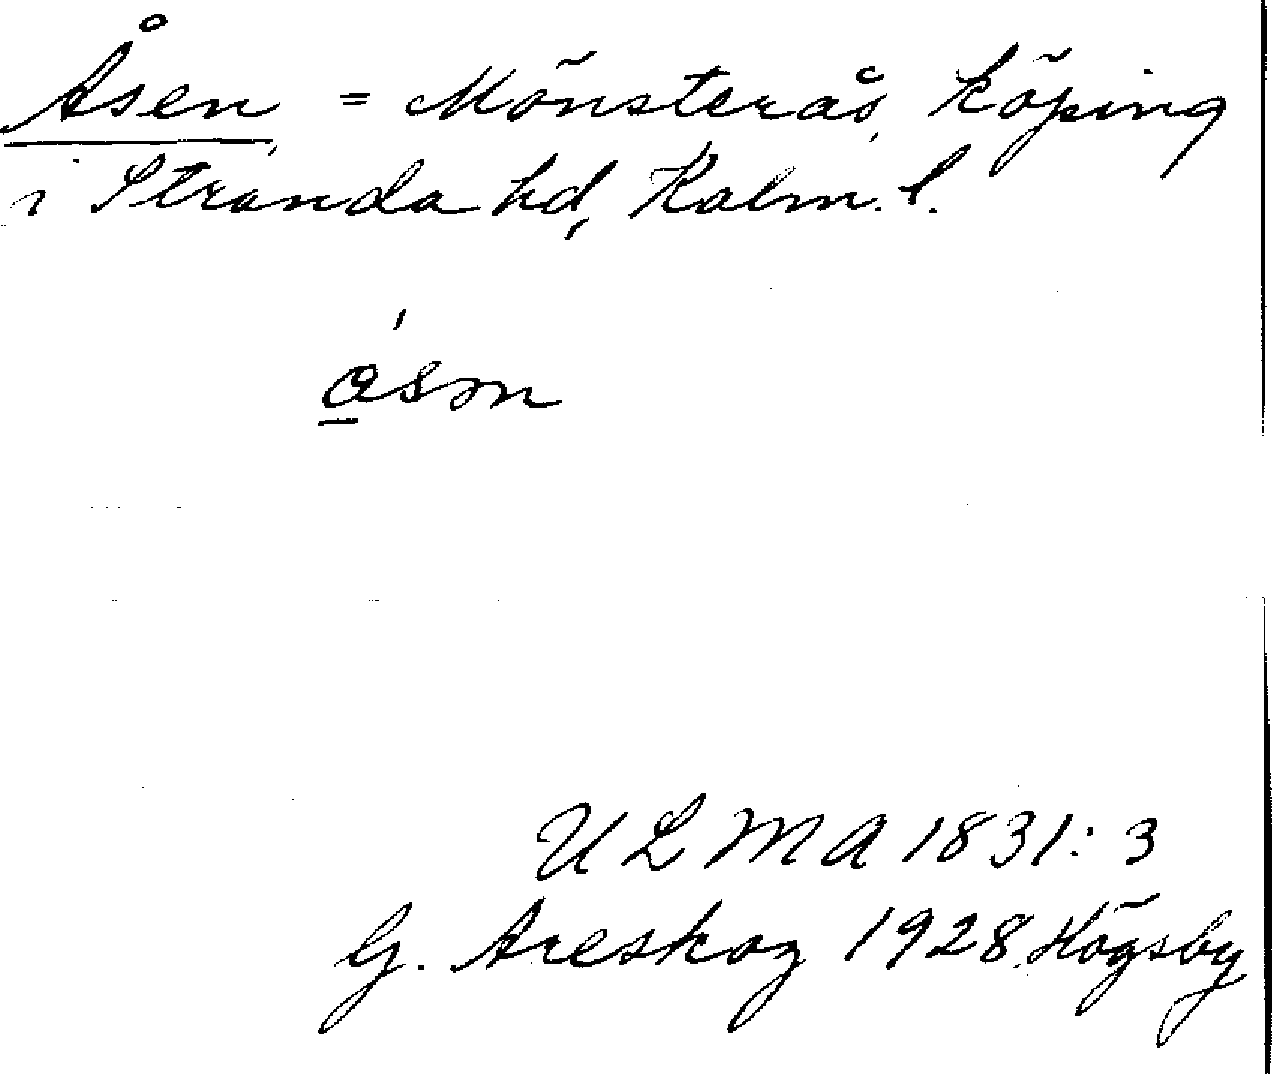 Åsen = Mönsterås, köping
i Stranda hd, Kalm. l.
åsən
ULMA 1831:3
G. Areskog 1928. Högsby